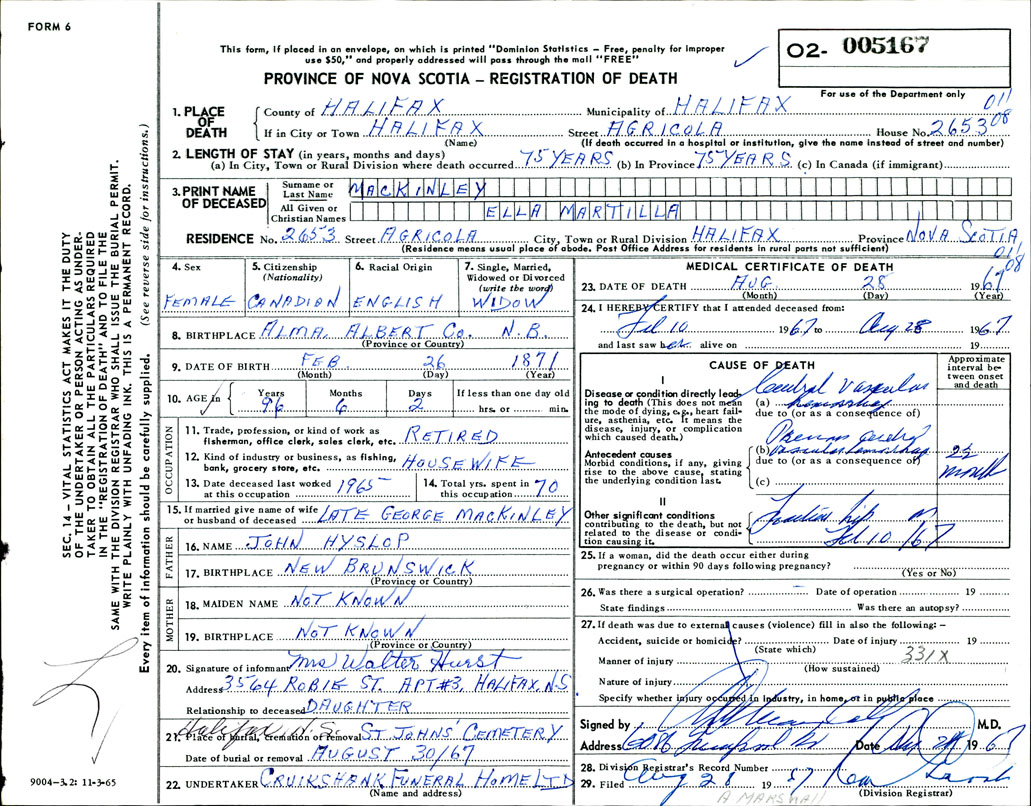 FORM 6
This form, if placed in an envelope, on which is printed "Dominion Statistics – Free, penalty for improper
use $50," and properly addressed will pass through the mail "FREE"
02- 005167
PROVINCE OF NOVA SCOTIA – REGISTRATION OF DEATH
For use of the Department only
011
08
1. PLACE OF DEATH
County of HALIFAX Municipality of HALIFAX
If in City or Town HALIFAX Street AGRICOLA House No. 2653
(Name) (If death occurred in a hospital or institution, give the name instead of street and number)
2. LENGTH OF STAY (in years, months and days)
(a) In City, Town or Rural Division where death occurred 75 YEARS (b) In Province 75 YEARS (c) In Canada (if immigrant)
3. PRINT NAME OF DECEASED
Surname or Last Name MACKINLEY
All Given or Christian Names ELLA MARTILLA
RESIDENCE No. 2653 Street AGRICOLA City, Town or Rural Division HALIFAX Province NOVA SCOTIA
(Residence means usual place of abode. Post Office Address for residents in rural parts not sufficient)
011
08
4. Sex
FEMALE
5. Citizenship
(Nationality)
CANADIAN
6. Racial Origin
ENGLISH
7. Single, Married,
Widowed or Divorced
(write the word)
WIDOW
8. BIRTHPLACE ALMA, ALBERT Co., N.B.
(Province or Country)
9. DATE OF BIRTH FEB. 26 1871
(Month) (Day) (Year)
10. AGE in Years Months Days If less than one day old
96 6 2 hrs. or min.
OCCUPATION
11. Trade, profession, or kind of work as
fisherman, office clerk, sales clerk, etc. RETIRED
12. Kind of industry or business, as fishing,
bank, grocery store, etc. HOUSEWIFE
13. Date deceased last worked
at this occupation 1965
14. Total yrs. spent in
this occupation 70
15. If married give name of wife
or husband of deceased LATE GEORGE MACKINLEY
FATHER
16. NAME JOHN HYSLOP
17. BIRTHPLACE NEW BRUNSWICK
(Province or Country)
MOTHER
18. MAIDEN NAME NOT KNOWN
19. BIRTHPLACE NOT KNOWN
(Province or Country)
20. Signature of informant Mrs Walter Hurst
Address 3564 ROBIE ST. APT #3, HALIFAX, N.S
Relationship to deceased DAUGHTER
Halifax N.S.
21. Place of burial, cremation or removal ST JOHNS' CEMETERY
Date of burial or removal AUGUST 30/67
22. UNDERTAKER CRUIKSHANK FUNERAL HOME LTD
(Name and address)
MEDICAL CERTIFICATE OF DEATH
23. DATE OF DEATH AUG 28 1967
(Month) (Day) (Year)
24. I HEREBY CERTIFY that I attended deceased from:
Feb 10 1967 to Aug 28 1967
and last saw her alive on 19
CAUSE OF DEATH
Approximate
interval be-
tween onset
and death
I
Disease or condition directly lead-
ing to death (This does not mean
the mode of dying, e.g., heart fail-
ure, asthenia, etc. It means the
disease, injury, or complication
which caused death.)
Cerebral Vascular
(a) hemorrhage
due to (or as a consequence of)
Antecedent causes
Morbid conditions, if any, giving
rise to the above cause, stating
the underlying condition last.
Previous cerebral
(b) vascular hemorrhage
due to (or as a consequence of)
(c)
month
II
Other significant conditions
contributing to the death, but not
related to the disease or condi-
tion causing it.
Fracture hip on
Feb 10/67
25. If a woman, did the death occur either during
pregnancy or within 90 days following pregnancy?
(Yes or No)
26. Was there a surgical operation? Date of operation 19
State findings Was there an autopsy?
27. If death was due to external causes (violence) fill in also the following: –
Accident, suicide or homicide? Date of injury 19
(State which)
331X
Manner of injury
(How sustained)
Nature of injury
Specify whether injury occurred in industry, in home, or in public place
Signed by M.D.
Address Date Aug 1967
28. Division Registrar's Record Number
29. Filed Aug 28 1967
(Division Registrar)
A MARSHALL
SEC. 14 – VITAL STATISTICS ACT MAKES IT THE DUTY
OF THE UNDERTAKER OR PERSON ACTING AS UNDER-
TAKER TO OBTAIN ALL THE PARTICULARS REQUIRED
IN THE "REGISTRATION OF DEATH" AND TO FILE THE
SAME WITH THE DIVISION REGISTRAR WHO SHALL ISSUE THE BURIAL PERMIT.
WRITE PLAINLY WITH UNFADING INK. THIS IS A PERMANENT RECORD.
Every item of information should be carefully supplied. (See reverse side for instructions.)
9004–3.2: 11-3-65